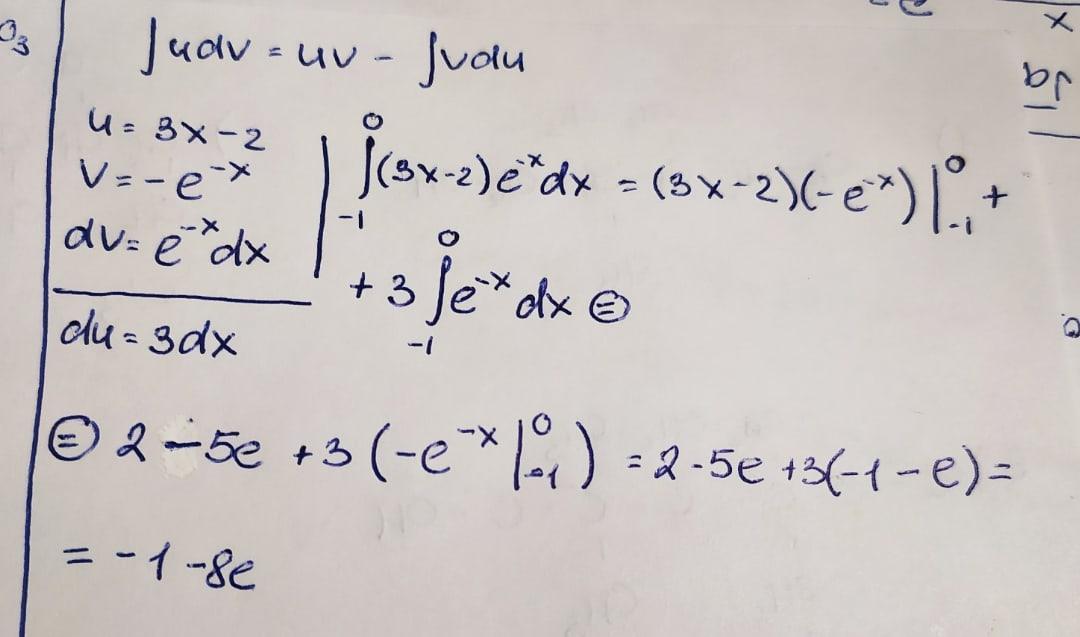 O₃
∫udv = uv - ∫vdu
u = 3x-2
v = -e^{-x}
dv = e^{-x}dx
du = 3dx
∫_{-1}^{0}(3x-2)e^{-x}dx = (3x-2)(-e^{-x})|_{-1}^{0} +
+ 3∫_{-1}^{0}e^{-x}dx ⊜
⊜ 2 - 5e + 3(-e^{-x}|_{-1}^{0}) = 2 - 5e + 3(-1 - e) =
= -1 - 8e
e
x